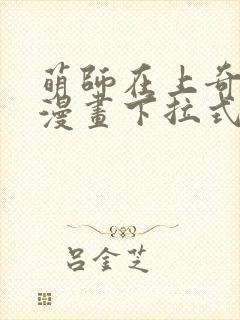 萌師在上奇
漫畫下拉式
呂金芝